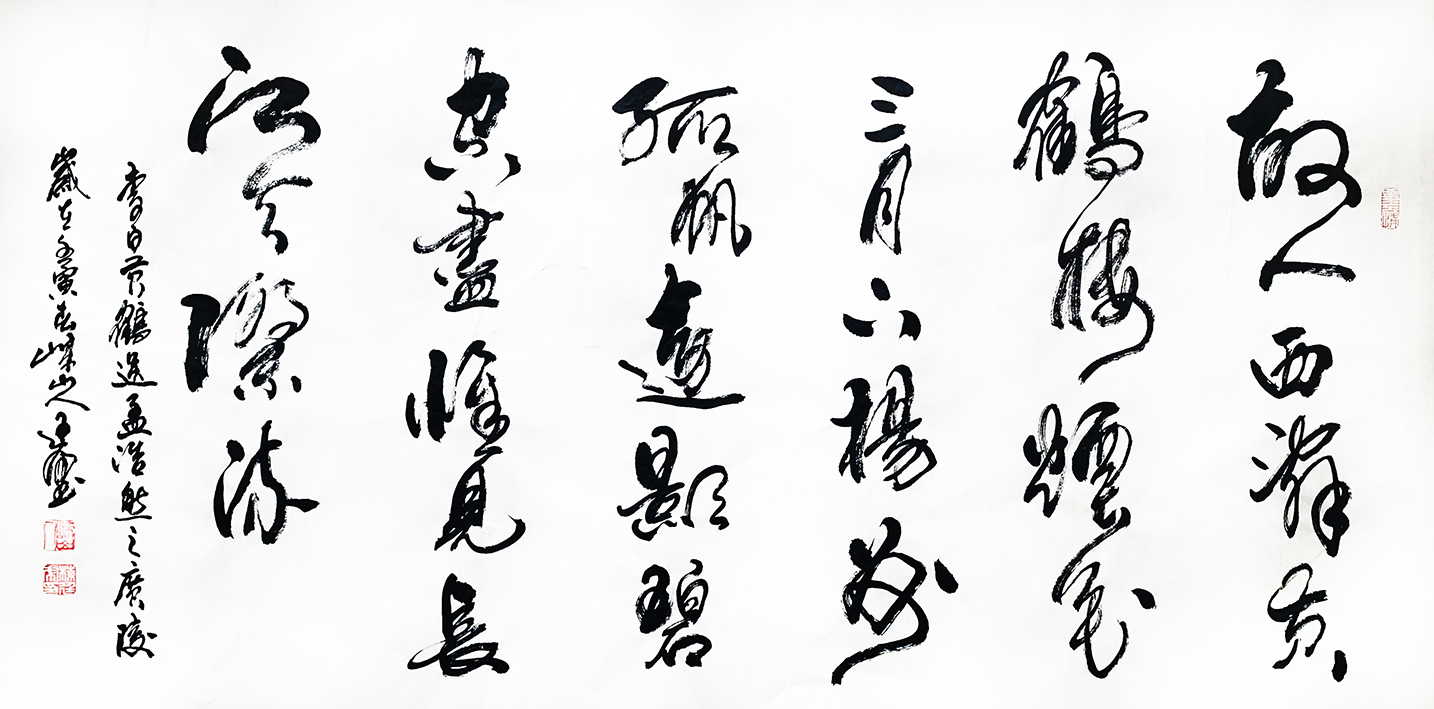 故人西辭黄
鶴樓煙花
三月下揚州
孤帆遠影碧
空盡惟見長
江天際流
李白黄鶴送孟浩然之廣陵
歲在壬寅春嶸山人